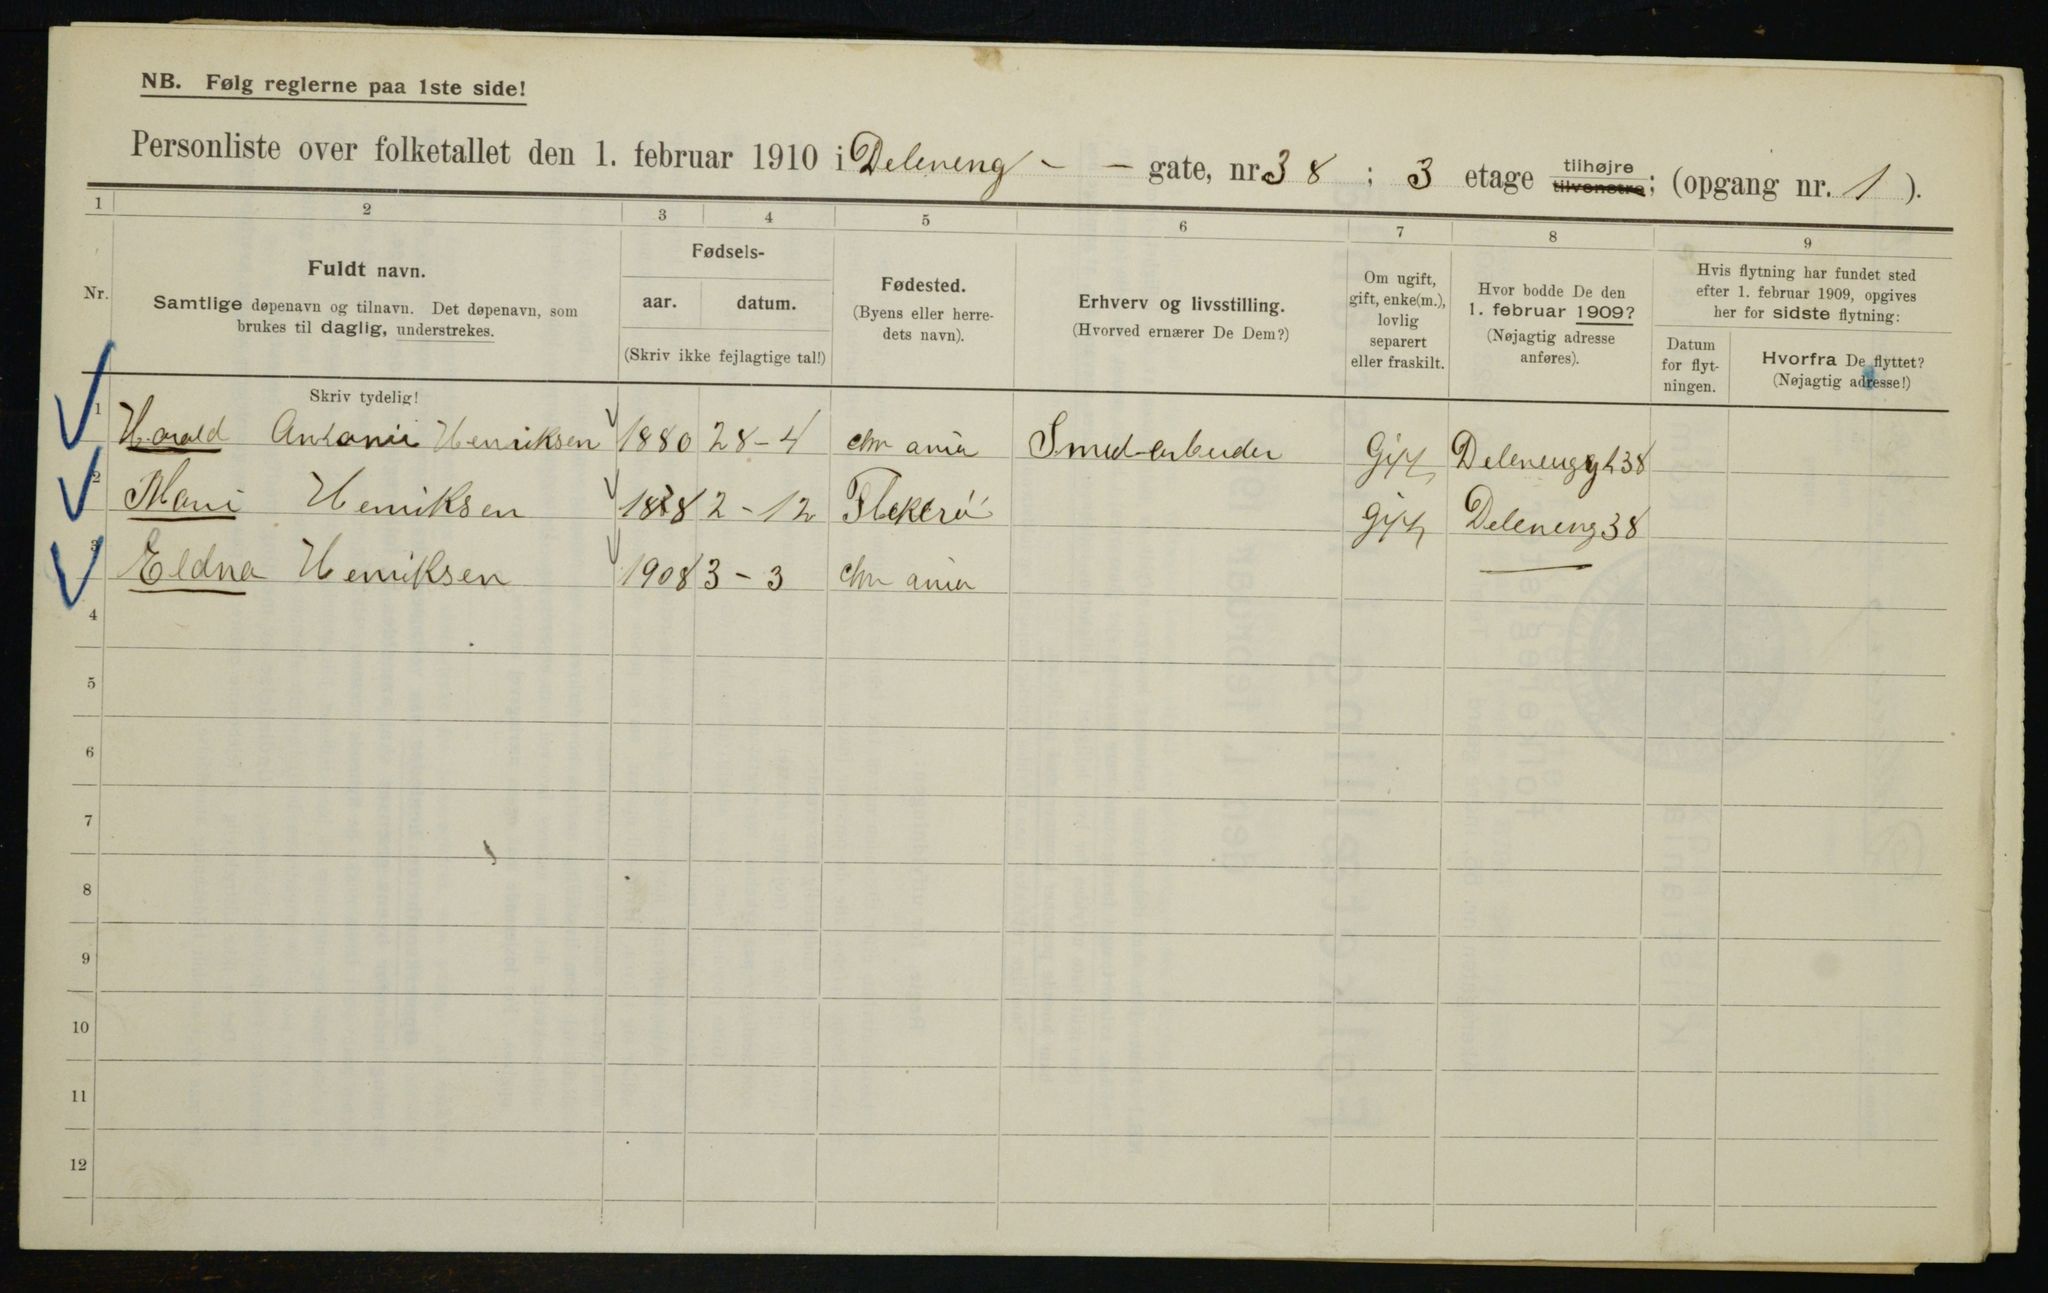 NB. Følg reglerne paa 1ste side!
Personliste over folketallet den 1. februar 1910 i Deleneng - - gate, nr. 38 ; 3 etage tilhøjre tilvenstre; (opgang nr. 1 ).
1 2 3 4 5 6 7 8 9
Nr.
Fuldt navn.
Samtlige døpenavn og tilnavn. Det døpenavn, som
brukes til daglig, understrekes.
Skriv tydelig!
Fødsels-
aar. datum.
(Skriv ikke fejlagtige tal!)
Fødested.
(Byens eller herre-
dets navn).
Erhverv og livsstilling.
(Hvorved ernærer De Dem?)
Om ugift,
gift, enke(m.),
lovlig
separert
eller fraskilt.
Hvor bodde De den
1. februar 1909?
(Nøjagtig adresse
anføres).
Hvis flytning har fundet sted
efter 1. februar 1909, opgives
her for sidste flytning:
Datum
for flyt-
ningen.
Hvorfra De flyttet?
(Nøjagtig adresse!)
1 Harald Antonii Henriksen 1880 28-4 Chr ania Smed-arbeider Gift Deleneng gt 38
2 Marie Henriksen 1878 2-12 Flekerö Gift Deleneng 38
3 Eldna Henriksen 1908 3-3 Chr ania —
4
5
6
7
8
9
10
11
12